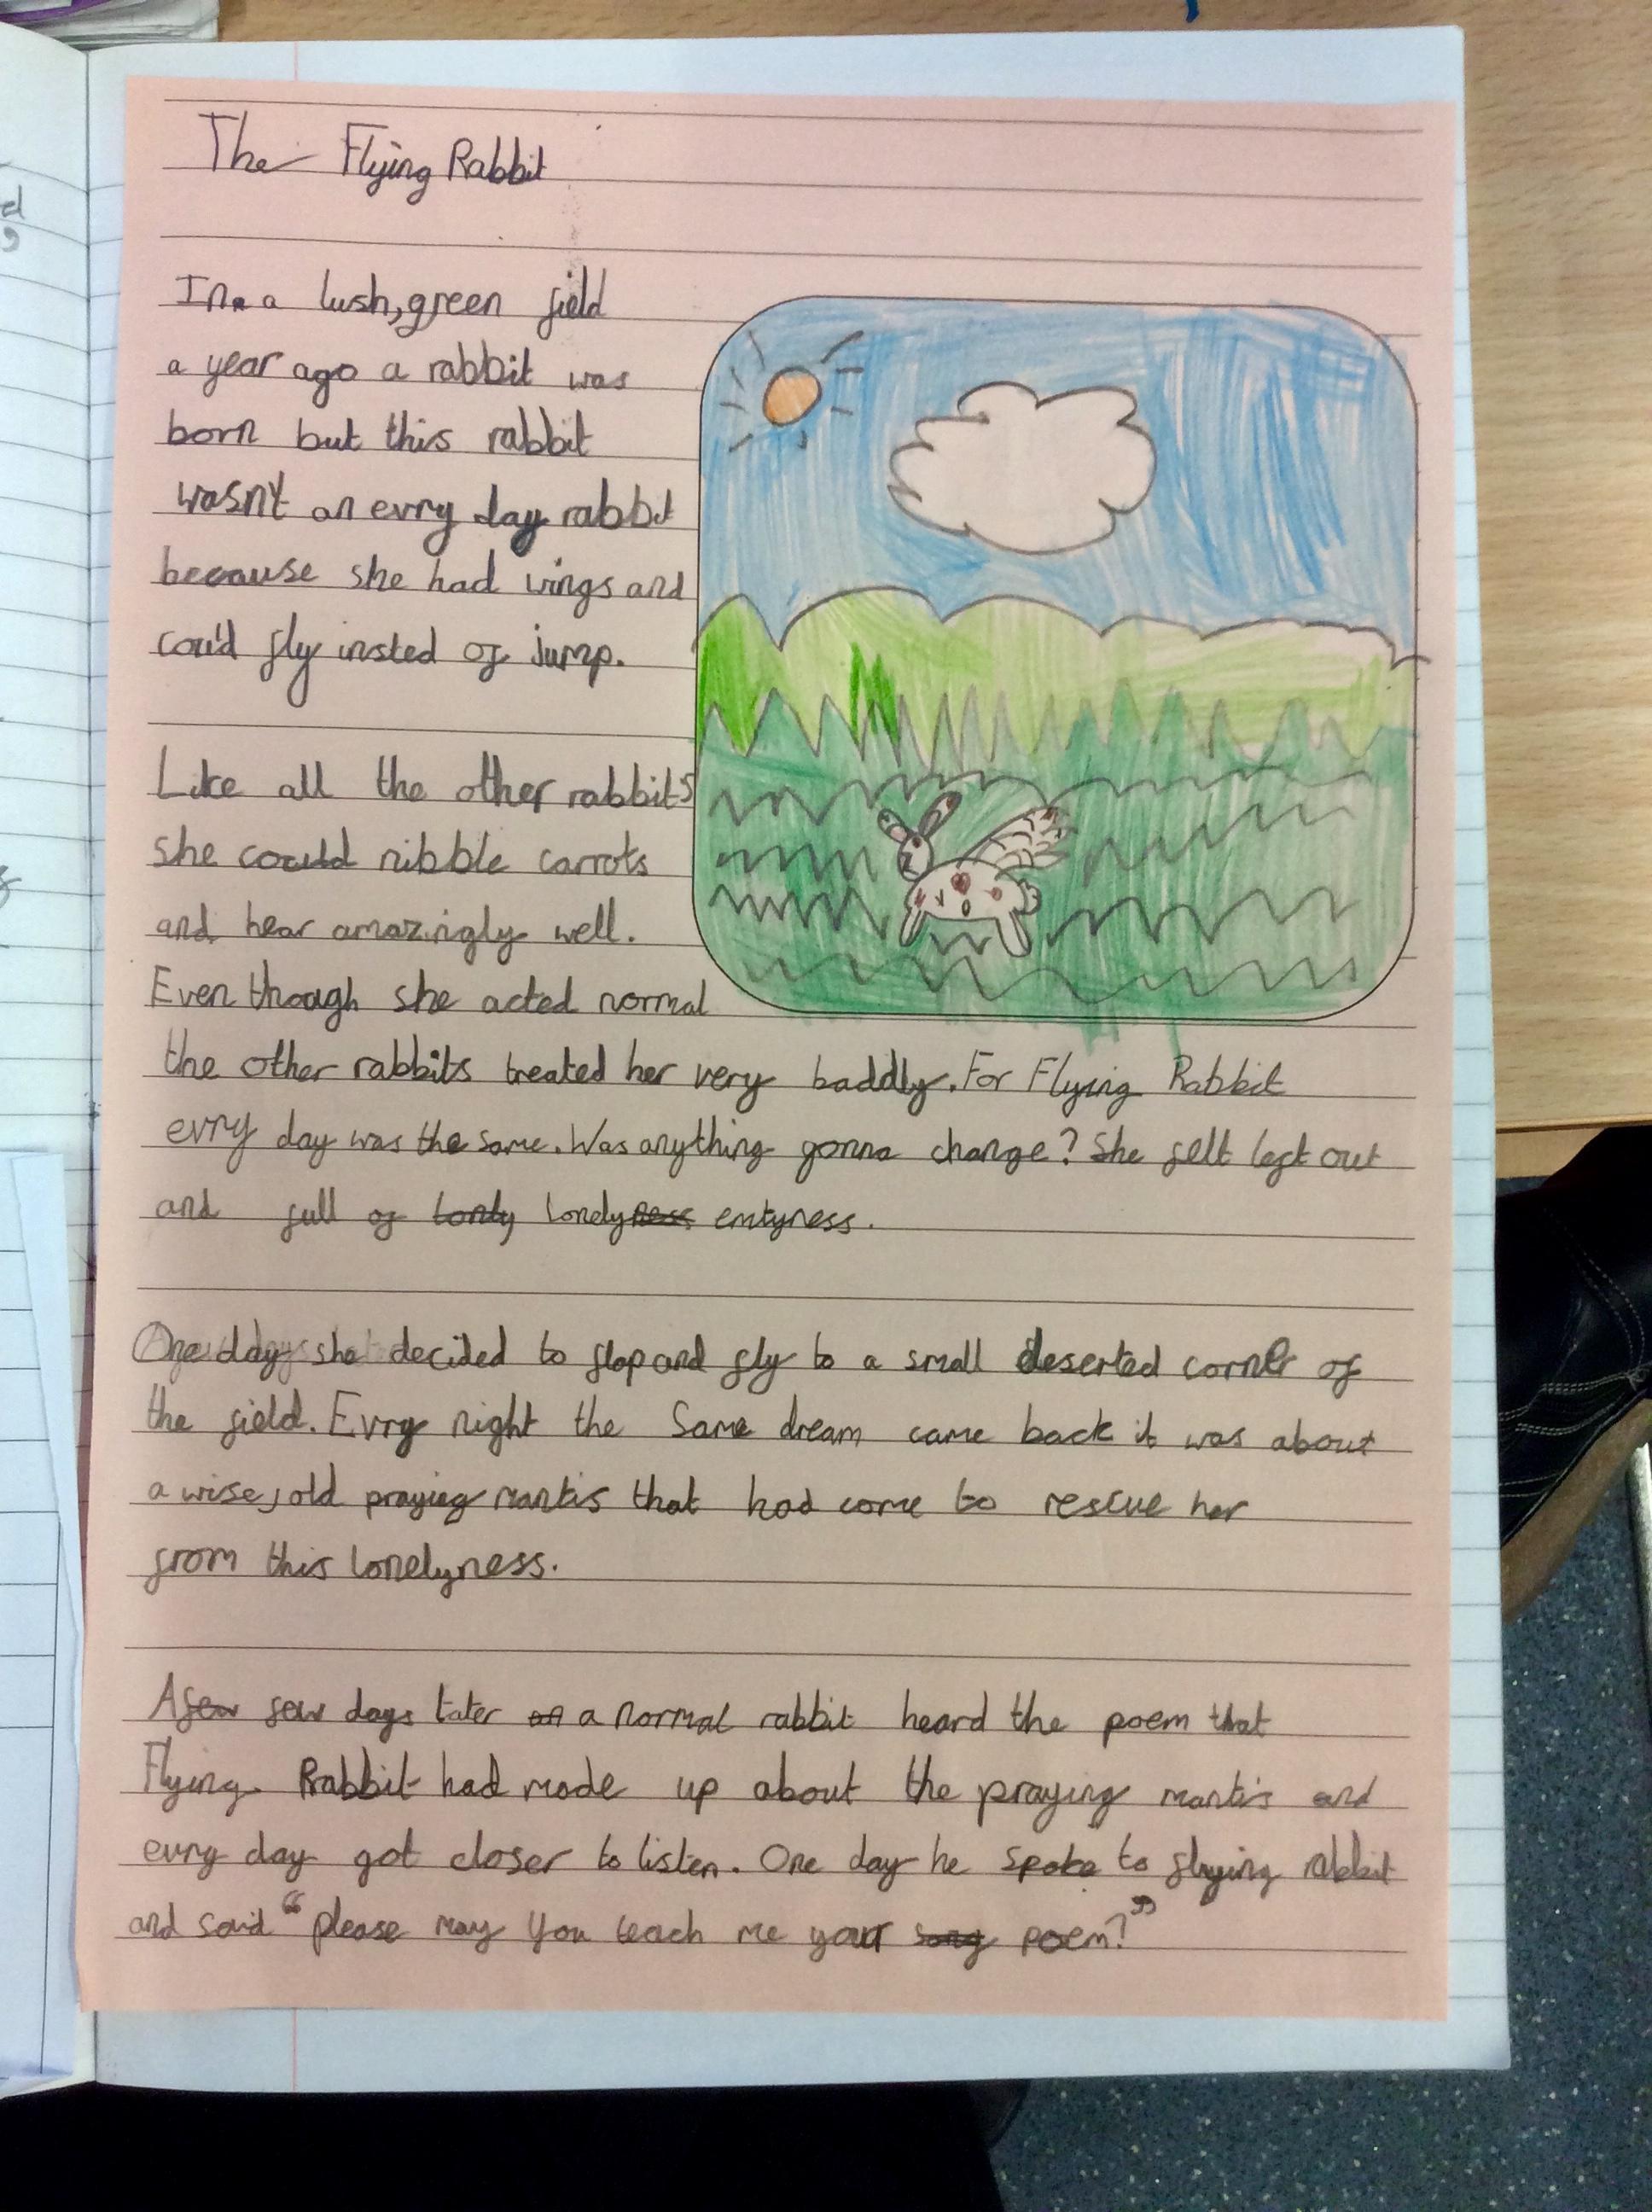 The Flying Rabbit
In a lush, green field
a year ago a rabbit was
born but this rabbit
wasn't an evry day rabbit
because she had wings and
could fly insted of jump.
Like all the other rabbits
she could nibble carrots
and hear amazingly well.
Even though she acted normal
the other rabbits treated her very baddly. For Flying Rabbit
evry day was the same. Was anything gonna change? She felt left out
and full of lonely emtyness.
One day she decided to flap and fly to a small deserted corner of
the field. Evry night the same dream came back it was about
a wise, old praying mantis that had come to rescue her
from this lonelyness.
A few days later a normal rabbit heard the poem that
Flying Rabbit had made up about the praying mantis and
evry day got closer to listen. One day he spoke to flying rabbit
and said "please may you teach me your poem?"